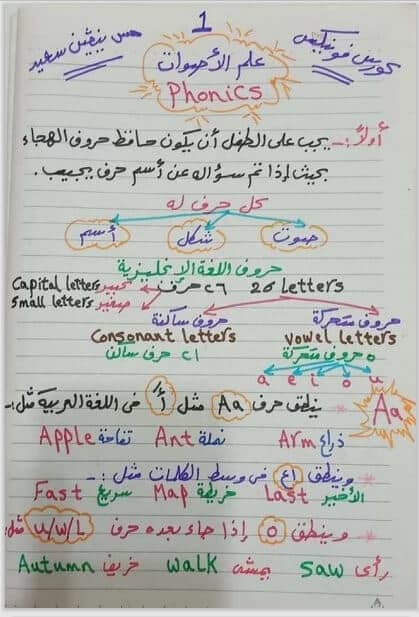 1
كورس فونيكس
علم الأصوات
مس نيفين سعيد
Phonics
أولاً :- يجب على الطفل أن يكون حافظ حروف الهجاء
بحيث إذا تم سؤاله عن أسم حرف يجيب.
كل حرف له
صوت شكل أسم
حروف اللغة الإنجليزية
26 Letters ٢٦ حرف كبير Capital letters
صغير Small letters
حروف متحركة حروف ساكنة
vowel letters Consonant letters
٥ حروف متحركة ٢١ حرف ساكن
a e i o u
Aa
ينطق حرف Aa مثل أ في اللغة العربية مثل :-
ذراع Arm نملة Ant تفاحة Apple
وينطق في وسط الكلمات مثل :-
الأخير Last خريطة Map سريع Fast
وينطق o إذا جاء بعده حرف u/w/L مثل :-
رأى Saw يمشى walk خريف Autumn